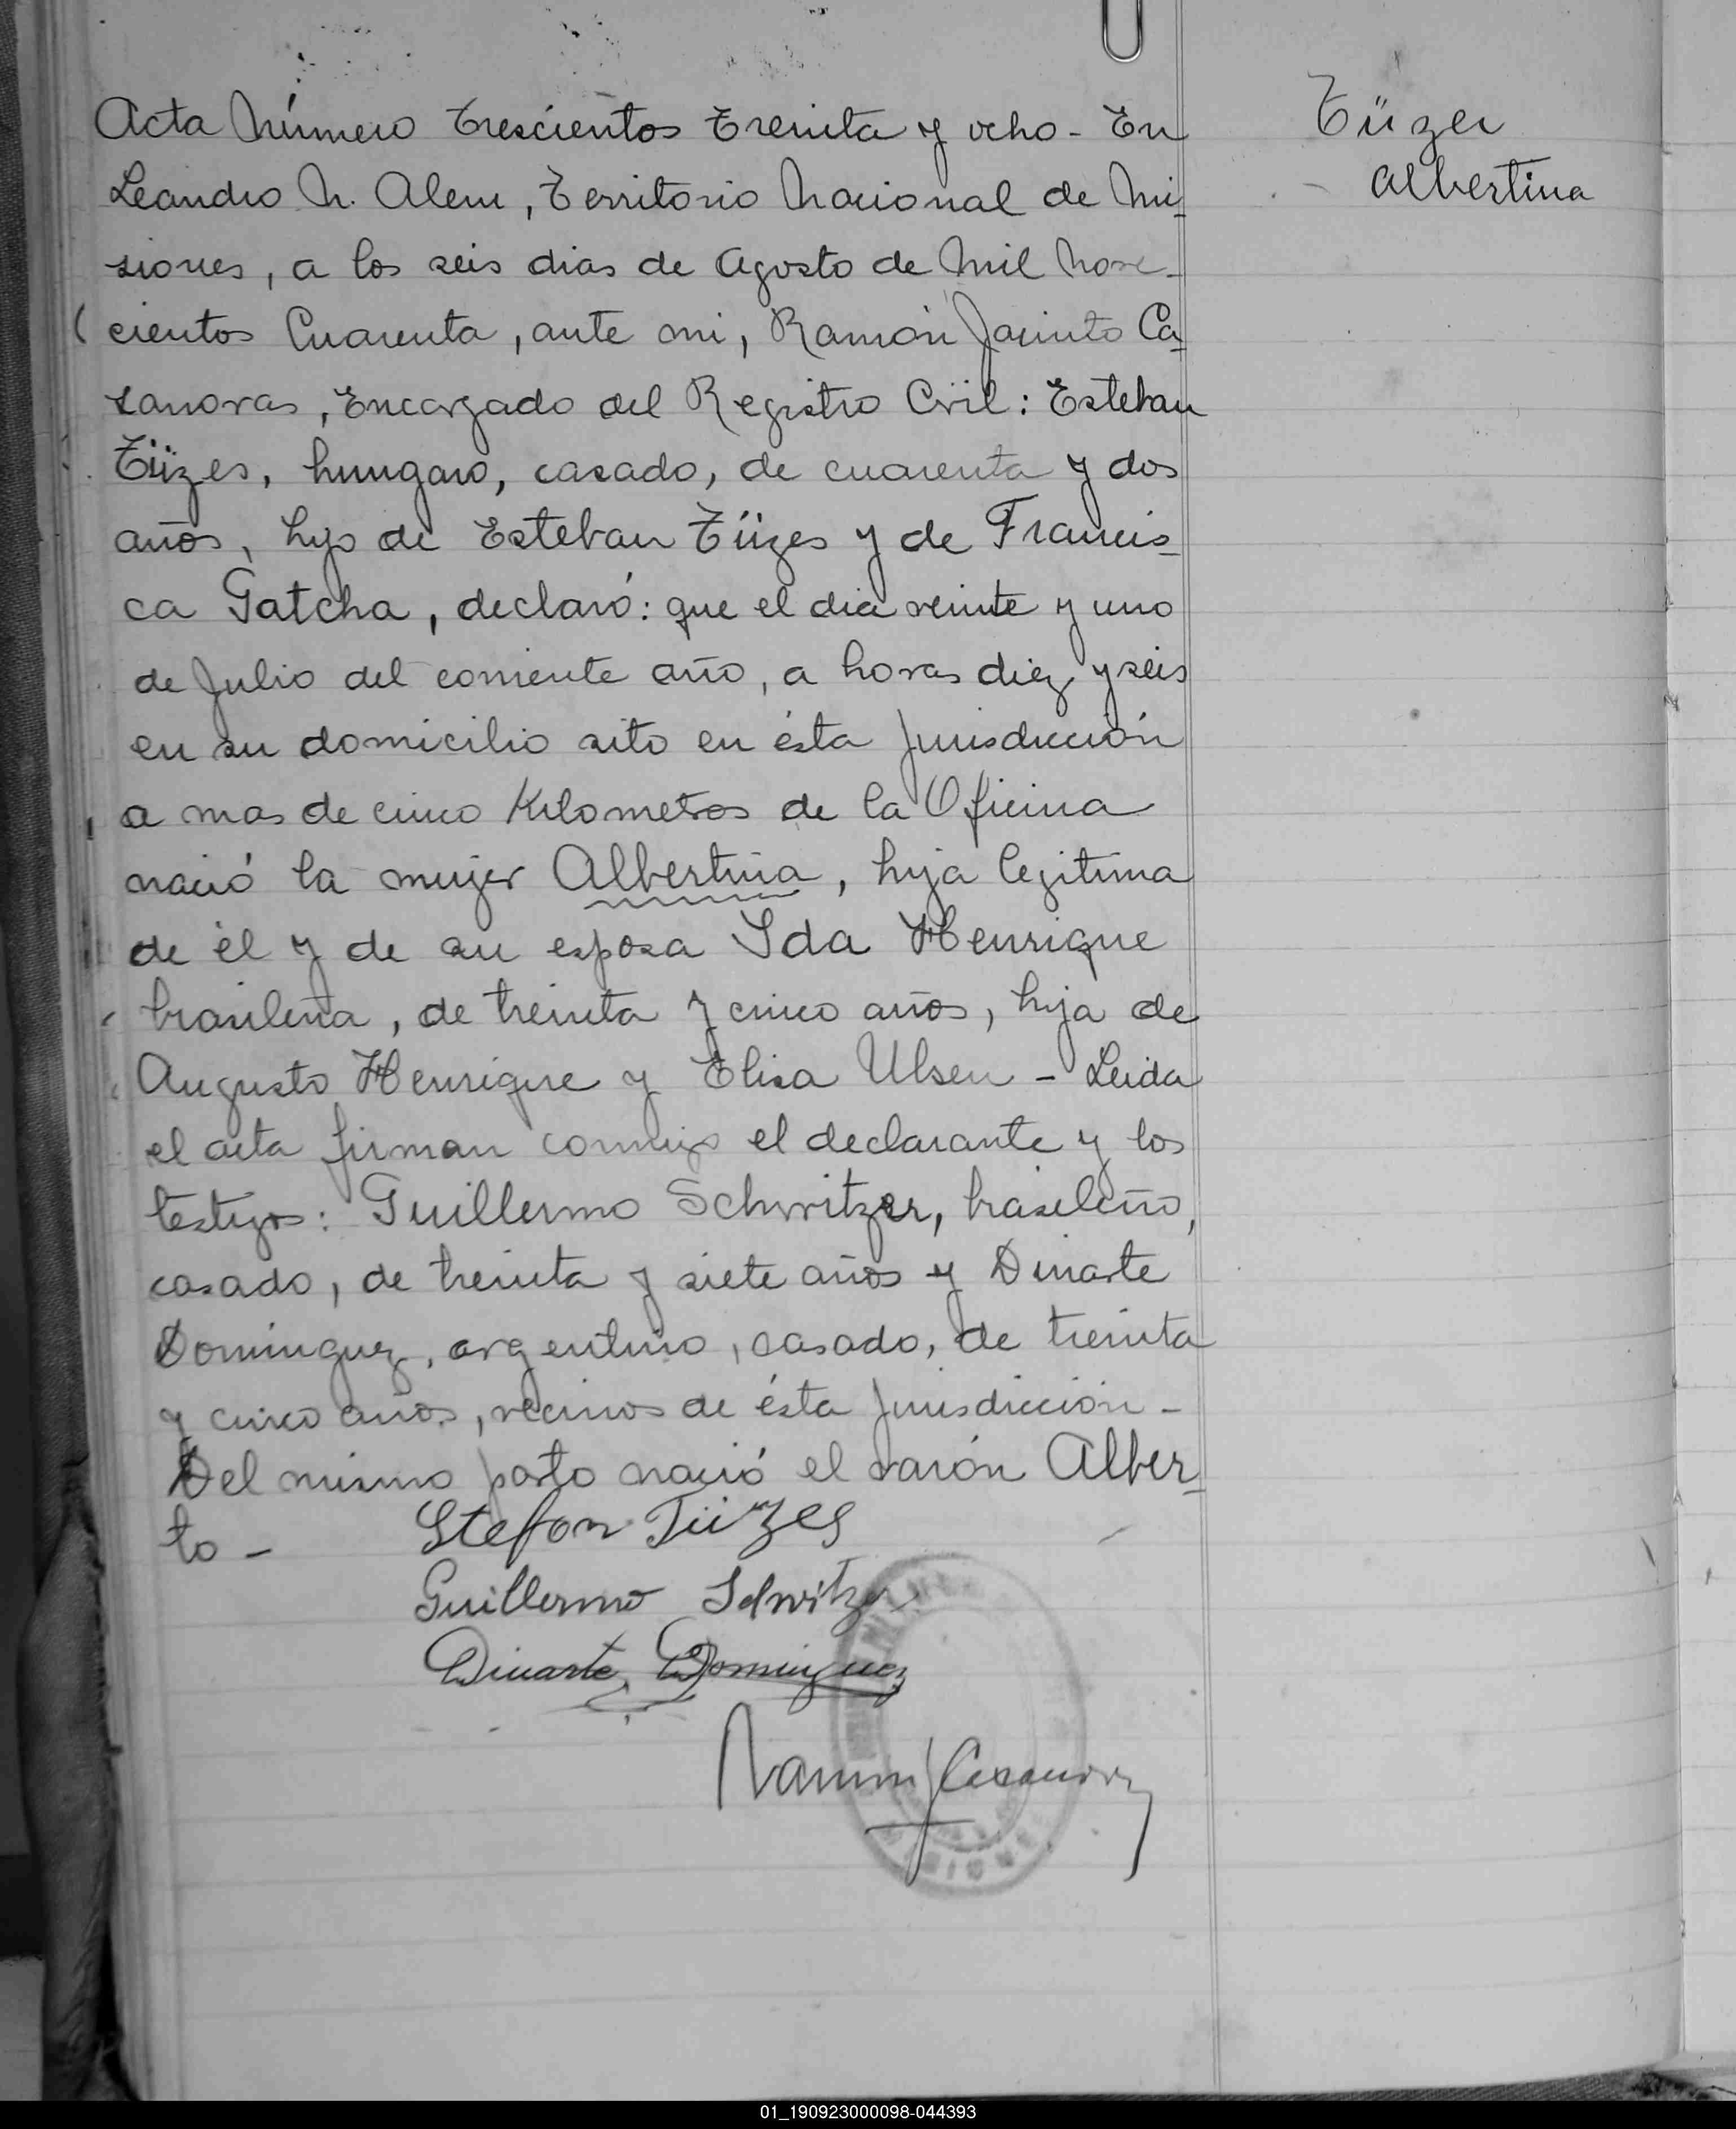 Acta Número Trescientos Treinta y ocho - En
Leandro N. Alem, Territorio Nacional de Mi-
siones, a los seis dias de Agosto de Mil Nove-
cientos Cuarenta, ante mi, Ramón Jacinto Ca-
sanovas, Encargado del Registro Civil: Esteban
Tüzes, hungaro, casado, de cuarenta y dos
años, hijo de Esteban Tüzes y de Francis-
ca Gatcha, declaró: que el dia veinte y uno
de Julio del corriente año, a horas diez y seis
en su domicilio sito en ésta Jurisdicción
a mas de cinco Kilometros de la Oficina
nació la mujer Albertina, hija legitima
de él y de su esposa Ida Henrique
brasileña, de treinta y cinco años, hija de
Augusto Henrique y Elisa Ulsen - Leida
el acta firman conmigo el declarante y los
testigos: Guillermo Schwitzer, brasileño,
casado, de treinta y siete años y Dinarte
Dominguez, argentino, casado, de treinta
y cinco años, vecinos de ésta Jurisdicción -
Del mismo parto nació el varón Alber-
to -
Stefon Tüzes
Guillermo Schwitzer
Dinarte Dominguez
Ramón J Casanovas
Tüzes
Albertina
MISIONES
01_190923000098-044393